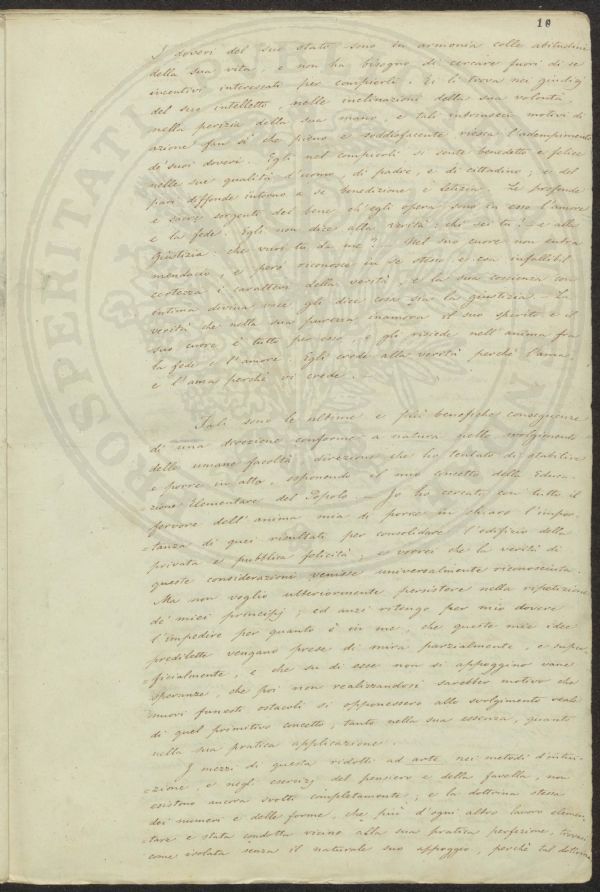 10
I doveri del suo stato sono in armonia colle abitudini
della sua vita, e non ha bisogno di cercare fuori di se
incentivi interessati per compierli. Ei li trova nei giudizj
del suo intelletto, nelle inclinazioni della sua volontà,
nella perizia della sua mano, e tali intrinseci motivi di
azione fan sì che pieno e soddisfacente riesca l'adempimento
de' suoi doveri. Egli nel compierli si sente benedetto e felice
nelle sue qualità d'uomo, di padre, e di cittadino; e del
pari diffonde intorno a se benedizione e letizia. Le profonde
e sacre sorgenti del bene ch'egli opera sono in esso l'amore
e la fede. Egli non dice alla verità: chi sei tu? — e alla
giustizia: che vuoi tu da me? — Nel suo cuore non entra
mendacio, e però riconosce in se stesso, e con infallibil
certezza i caratteri della verità, e la sua coscienza con
intima divina voce gli dice cosa sia la giustizia. — La
verità che nella sua purezza innamora il suo spirito e il
suo cuore è tutto per esso, e gli risiede nell'anima fra
la fede e l'amore. Egli crede alla verità perchè l'ama,
e l'ama perchè vi crede.
Tali sono le ultime e più benefiche conseguenze
di una direzione conforme a natura nello svolgimento
delle umane facoltà, direzione che ho tentato di stabilire
e porre in atto, esponendo il mio concetto della Educa-
zione Elementare del Popolo. — Io ho cercato con tutto il
fervore dell'anima mia di porre in chiaro l'impor-
tanza di quei risultati per consolidare l'edificio della
privata e pubblica felicità; e vorrei che la verità di
queste considerazioni venisse universalmente riconosciuta.
Ma non voglio ulteriormente persistere nella ripetizione
de' miei principj; ed anzi ritengo per mio dovere
l'impedire per quanto è in me, che queste mie idee
predilette vengano prese di mira parzialmente, e super-
ficialmente, e che su di esse non si appoggino vane
speranze, che poi non realizzandosi sarebber motivo che
nuovi funesti ostacoli si opponessero allo svolgimento reale
di quel primitivo concetto, tanto nella sua essenza, quanto
nella sua pratica applicazione.
I mezzi di questa ridotti ad arte, nei metodi d'intui-
zione, e negli esercizj del pensiero e della favella, non
esistono ancora svolti completamente; e la dottrina stessa
dei numeri e delle forme, che più d'ogni altro lavoro elemen-
tare è stata condotta vicino alla sua pratica perfezione, trovasi
come isolata senza il naturale suo appoggio, perchè tal dottrina